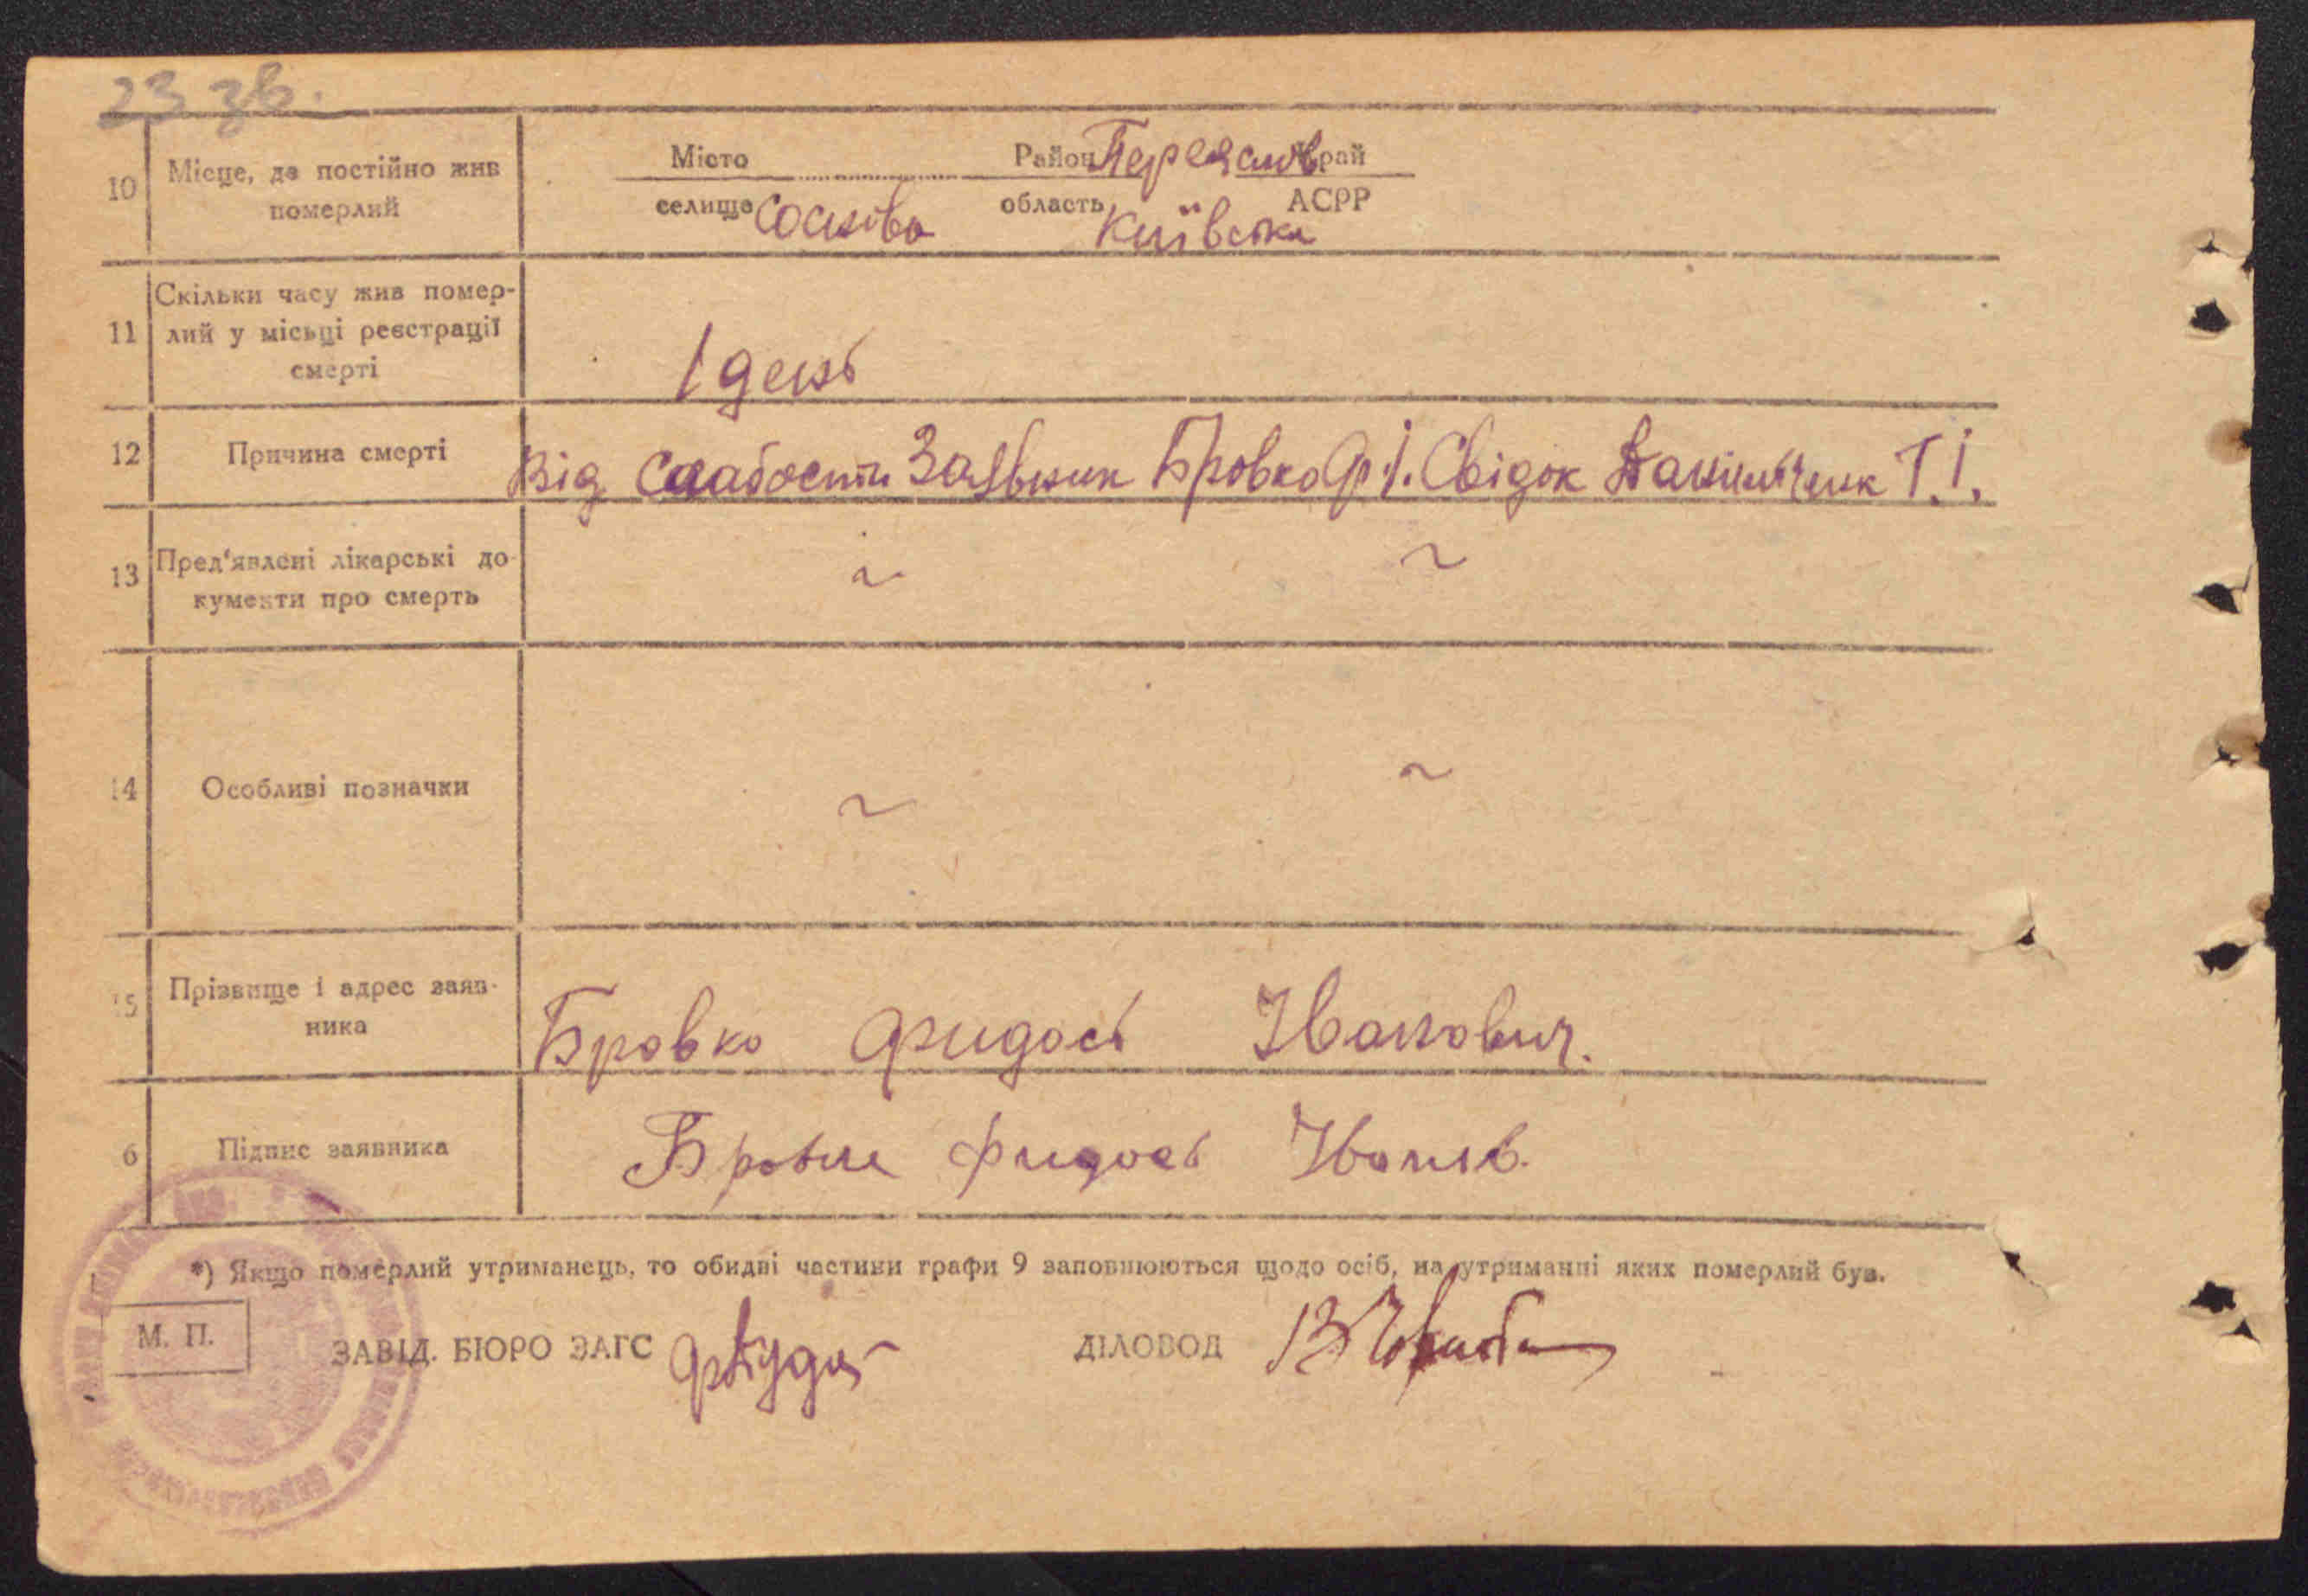 23 зв.
10 Місце, де постійно жив померлий
Місто Район Переяслов край
селище Соснова область Київська АСРР
11 Скільки часу жив помер-
лий у місьці реєстрації
смерті
1 день
12 Причина смерті Від Слабости Заявник Бровко Ф. І. Свідок Т. І.
13 Пред'явлені лікарські до-
кументи про смерть
~ ~
14 Особливі позначки ~ ~
15 Прізвище і адрес заяв-
ника
Бровко Фидось Иванович.
6 Підпис заявника Бровко Фидось Иванов.
*) Якщо померлий утриманець, то обидві частини графи 9 заповнюються щодо осіб, на утриманні яких померлий був.
М. П. ЗАВІД. БЮРО ЗАГС ДІЛОВОД